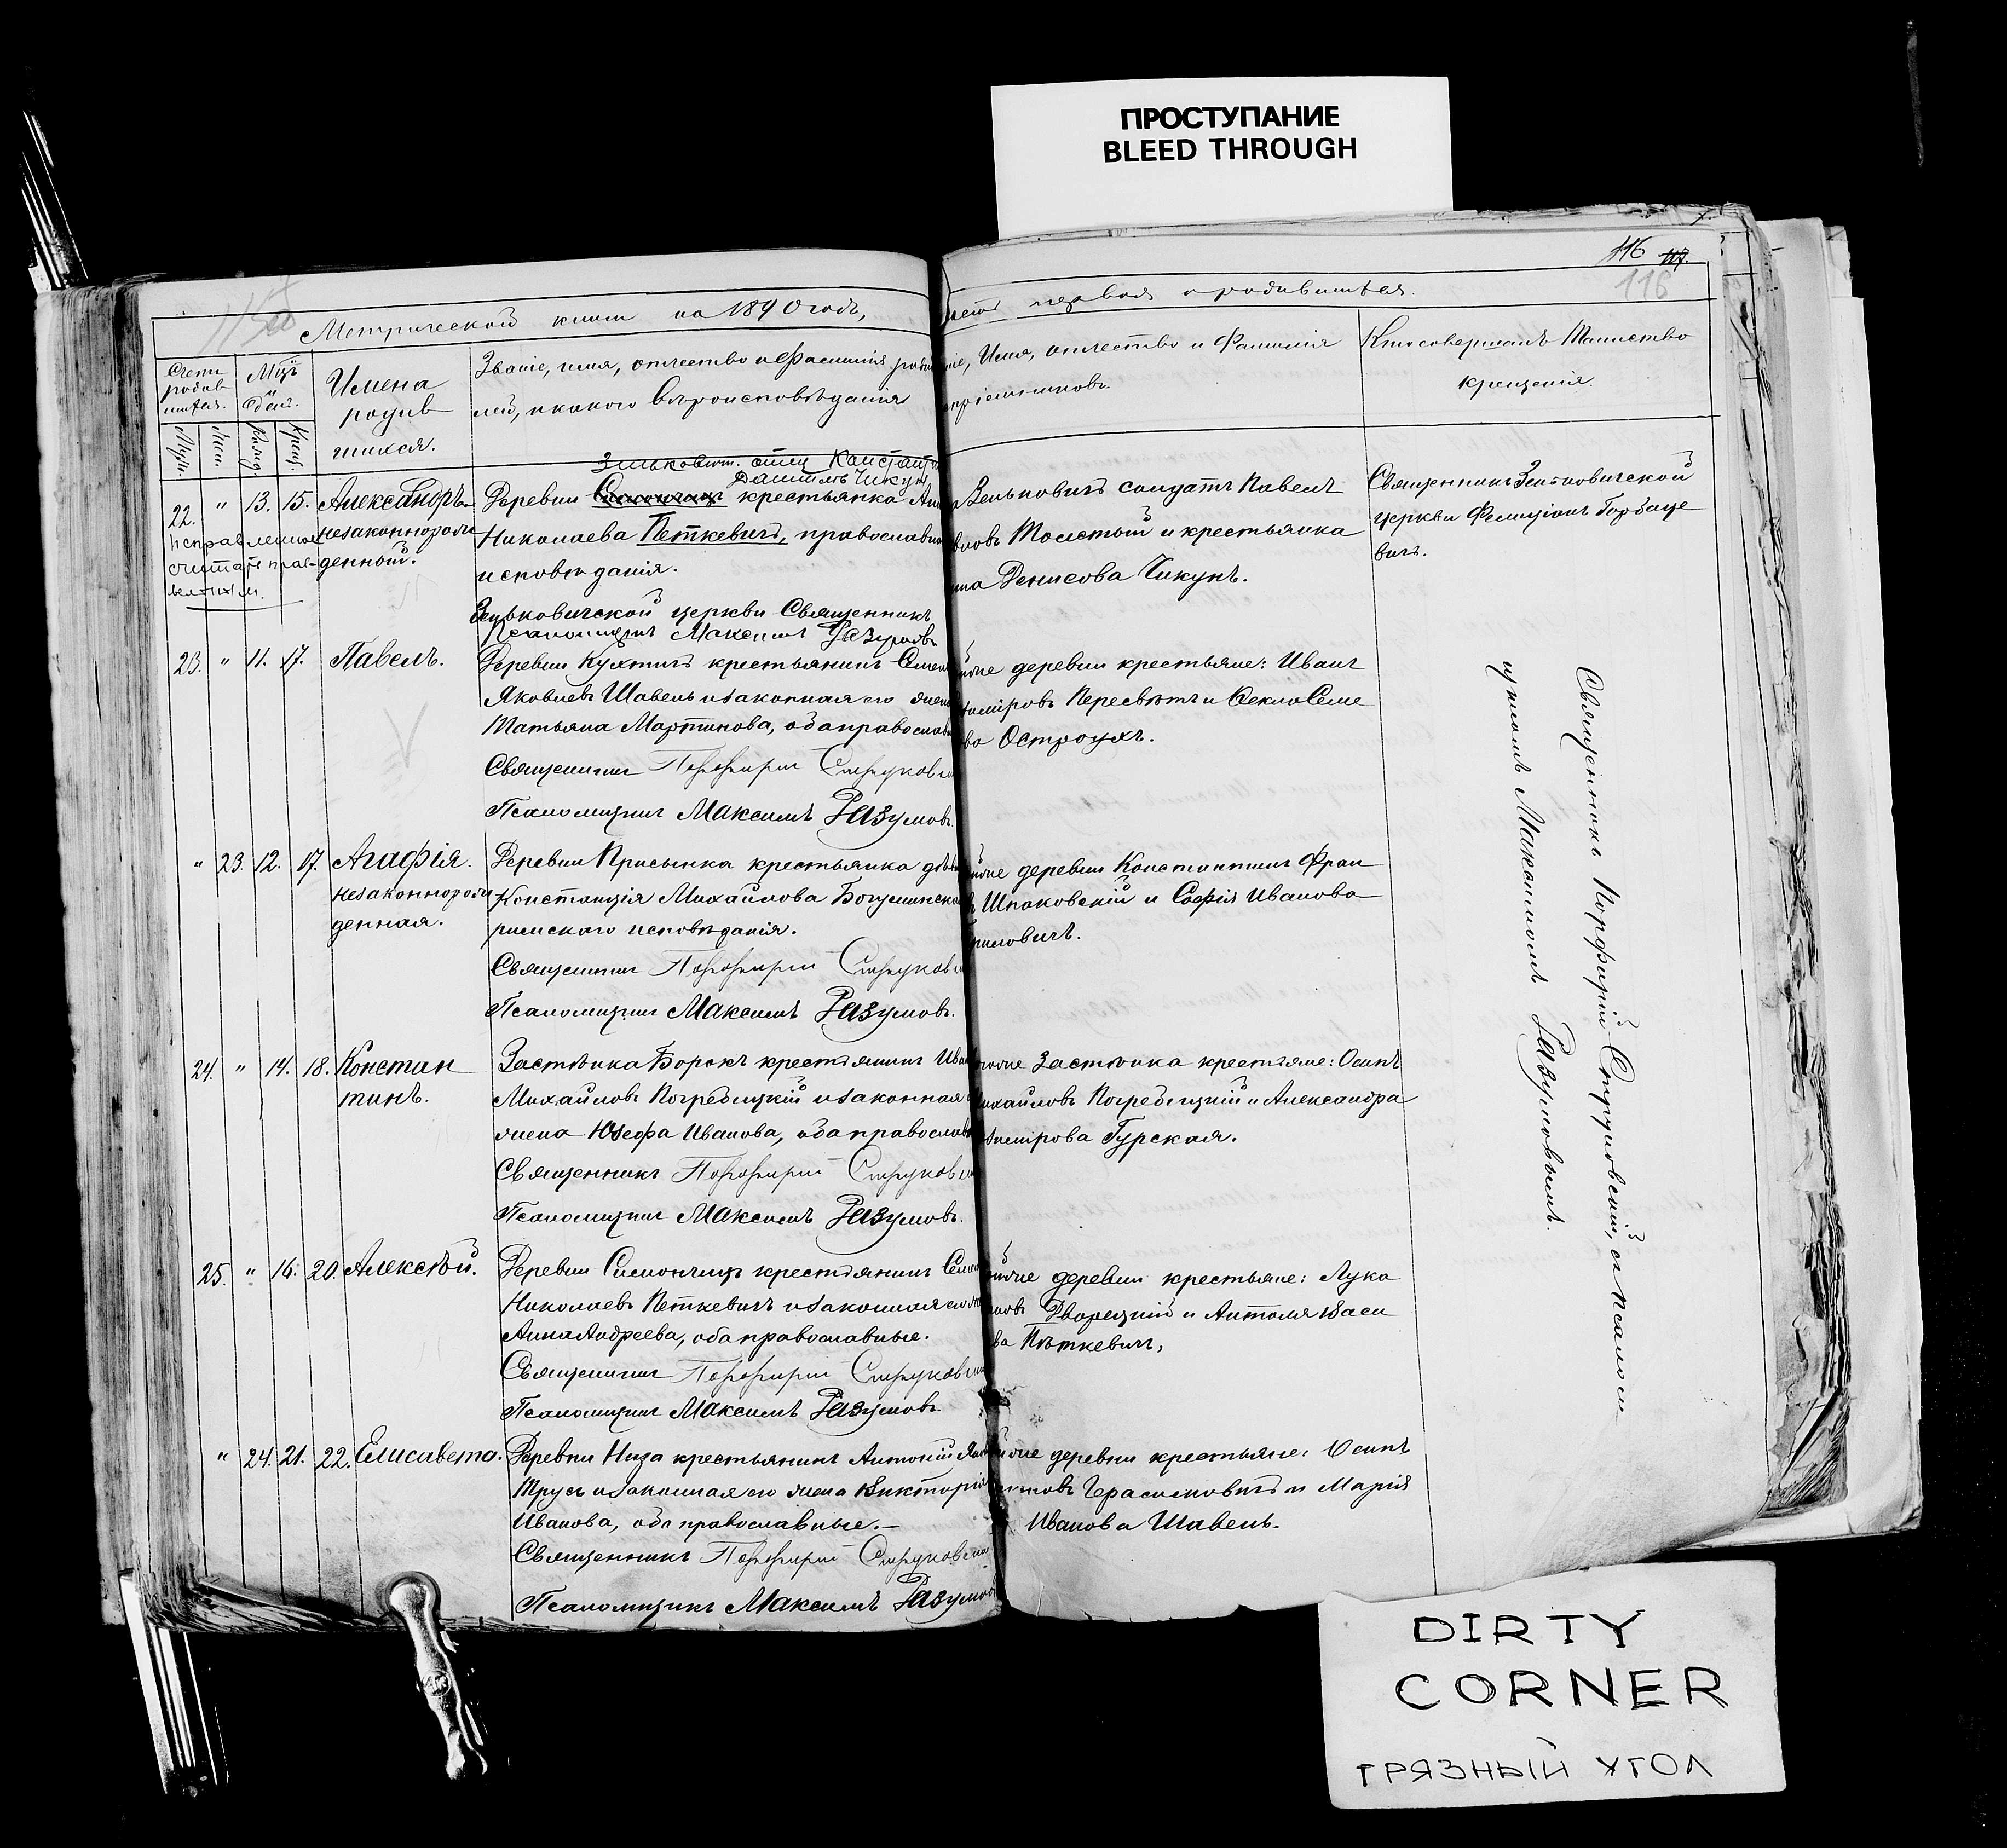 ПРОСТУПАНИЕ
BLEED THROUGH
116 117.
116
Метрической книги на 1890 годъ,
первая о родившихся.
Счетъ родив шихся.
Муж. Жен.
Мѣс. и день.
Рожд. Крещ.
Имена родив шихся.
Званіе, имя, отчество и фамилія роди
лей, и какого вѣроисповѣданія
Имя, отчество и Фамилія
Кто совершалъ Таинство
крещенія.
22. " 13. 15. Александръ
незаконнорож
денный.
Исправленное
считать
Деревни крестьянка
Николаева Петкевичъ, православн
исповѣданія.
Зеньковичской церкви Священникъ
Псаломщикъ Максимъ Разумовъ
Зеньковичъ солдатъ Павелъ
Толстый и крестьянка
Денисова Чикунъ.
Священникъ Зеньковичской
церкви Горбаце
вичъ.
23. " 11. 17. Павелъ.
Деревни Кухтичъ крестьянинъ Семен
Яковлевъ Шавель и законная его жена
Татьяна Мартинова, оба православн
Священникъ Порфирій Струковск
Псаломщикъ Максимъ Разумовъ.
деревни крестьяне: Иванъ
Пересвѣтъ и Текла Семе
ва Остроухъ.
" 23. 12. 17. Агафія.
незаконнорож
денная.
Деревни Присынка крестьянка дѣв
Констанція Михайлова Богушинск
римскаго исповѣданія.
Священникъ Порфирій Струковск
Псаломщикъ Максимъ Разумовъ.
деревни Константинъ Фран
Шпаковскій и Софія Иванова
24. " 14. 18. Констан
тинъ.
Застѣнка Борокъ крестьянинъ Иван
Михайловъ Погребицкій и законная
жена Юзефа Иванова, оба православн
Священникъ Порфирій Струковск
Псаломщикъ Максимъ Разумовъ.
Застѣнка крестьяне: Осипъ
ихайловъ Погребицкій и Александра
Гурская.
25. " 16. 20. Алексѣй.
Деревни Симончицъ крестьянинъ Семен
Николаевъ Петкевичъ и законная его
Анна Андреева, оба православные.
Священникъ Порфирій Струковск
Псаломщикъ Максимъ Разумовъ.
деревни крестьяне: Лука
Дворецкій и Антоля Васи
ва Пѣткевичъ,
" 24. 21. 22. Елисавета.
Деревни Низа крестьянинъ Антоній
Трусъ и законная его жена Викторія
Иванова, оба православные.—
Священникъ Порфирій Струковск
Псаломщикъ Максимъ Разумов
деревни крестьяне: Осипъ
Герасимовичъ и Марія
Иванова Шавель.
Священникъ Порфирій Струковскій, съ псаломщ
щикомъ Максимомъ Разумовымъ.
DIRTY
CORNER
ГРЯЗНЫЙ УГОЛ